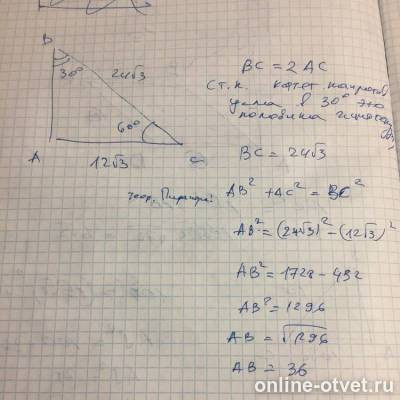 B
30°
24√3
60°
A
12√3
C
BC = 2AC
(т.к. катет напротив
угла в 30° это
половина гипотенузы)
BC = 24√3
теор. Пифагора:
AB² + AC² = BC²
AB² = (24√3)² - (12√3)²
AB² = 1728 - 432
AB² = 1296
AB = √1296
AB = 36
online-otvet.ru